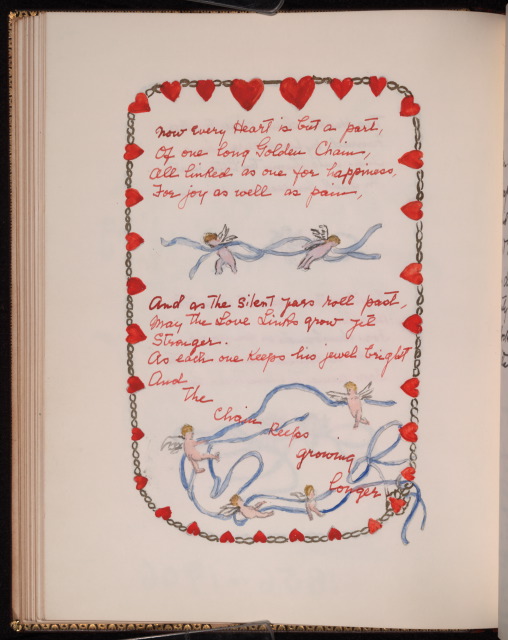 Now Every Heart is but a part,
Of one long Golden Chain,
All linked as one for happiness,
For joy as well as pain,
And as The Silent years roll past,
May The Love Links grow yet
Stronger.
As each one Keeps his jewel bright
And
The
Chain
Keeps
growing
longer